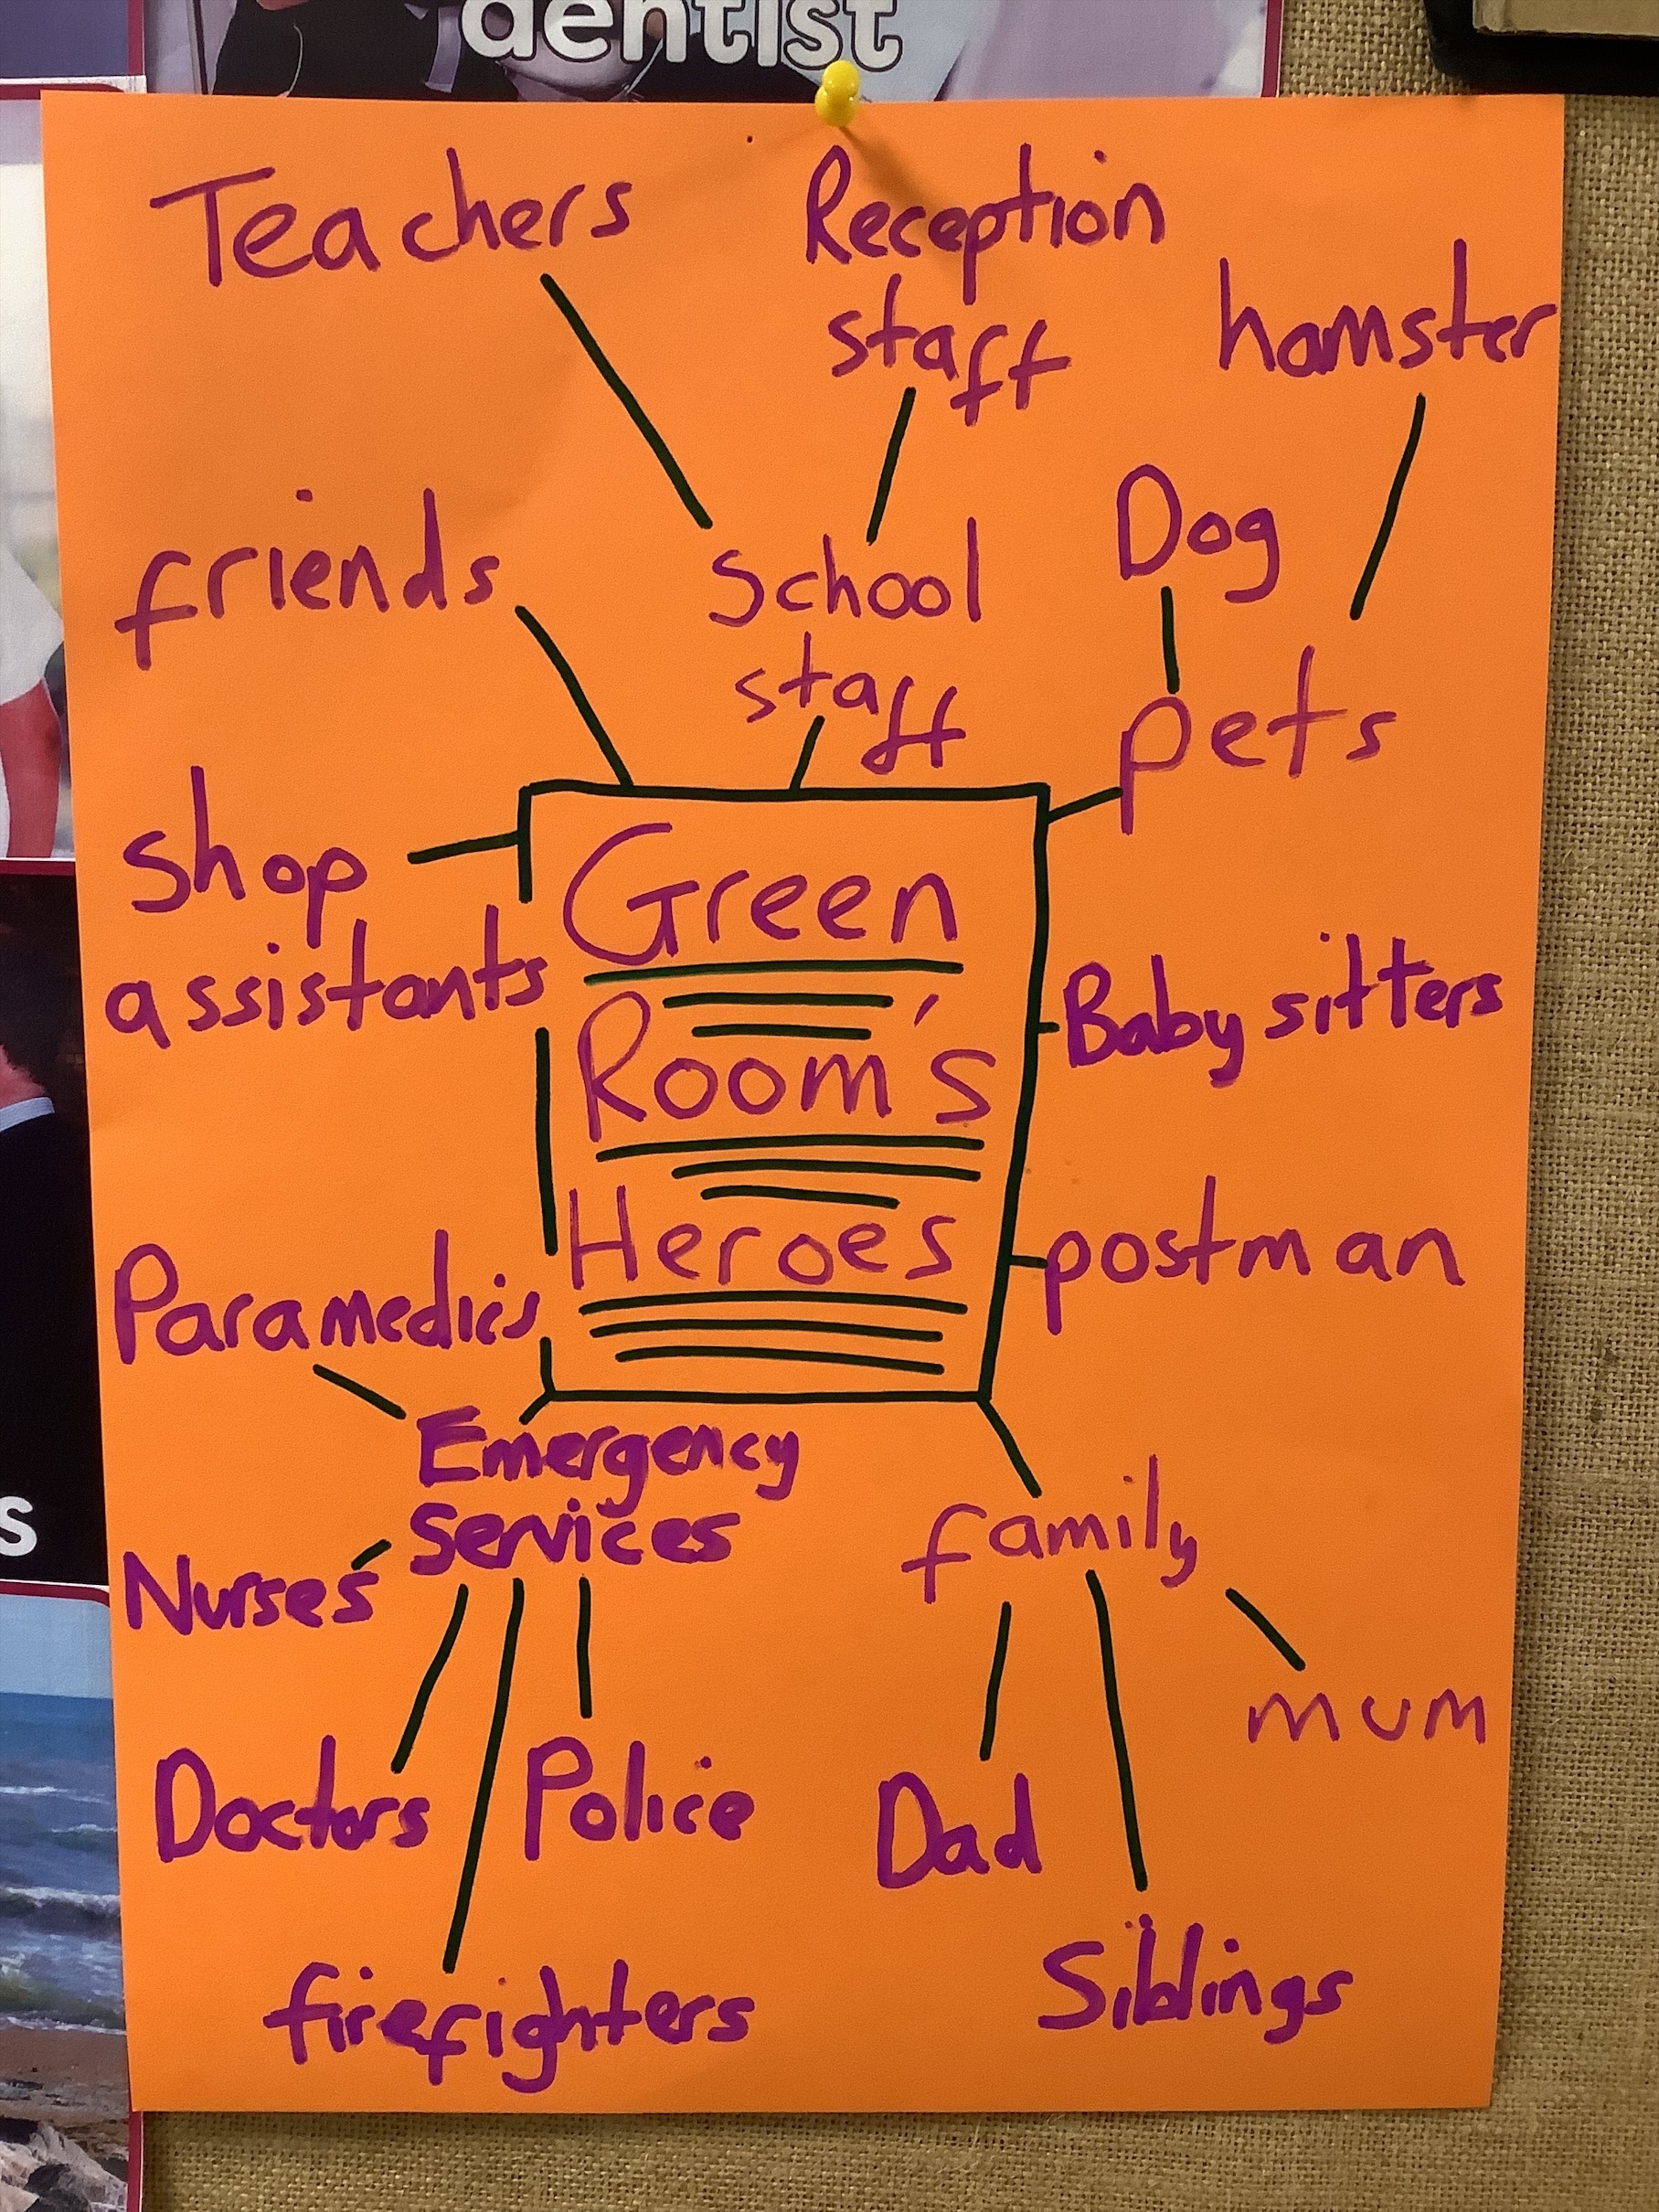 dentist
Teachers
Reception
staff
hamster
friends
School
staff
Dog
pets
Shop
assistants
Green
Room's
Heroes
Baby sitters
postman
Paramedics
Emergency
Services
Nurses
Doctors
Police
firefighters
family
mum
Dad
Siblings
s